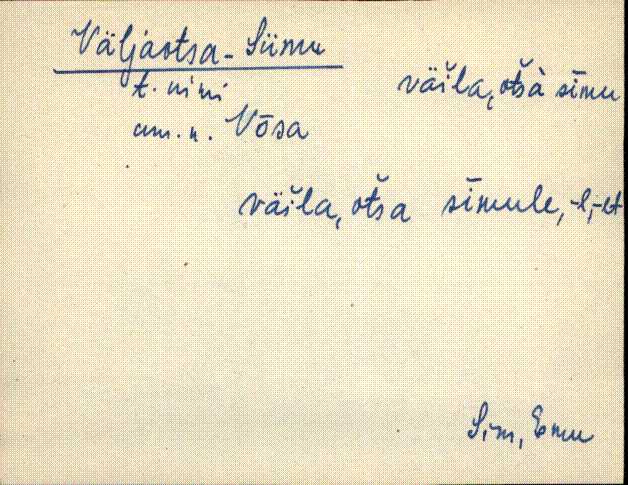 Väljaotsa-Siimu
t. nimi
am. n. Võsa
väi̮la, ot́šà sīmu
väi̮la, ot́ša sīmule, -l, -lt
Sim, Emu